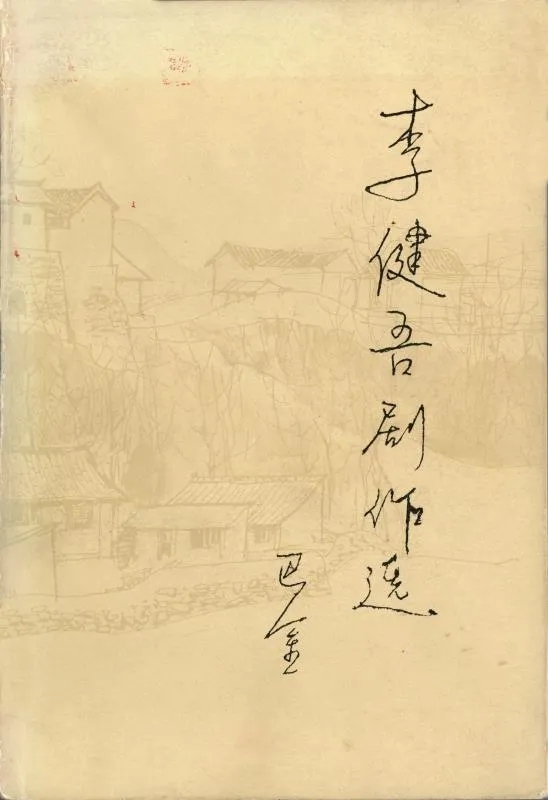 李健吾剧作选
巴金